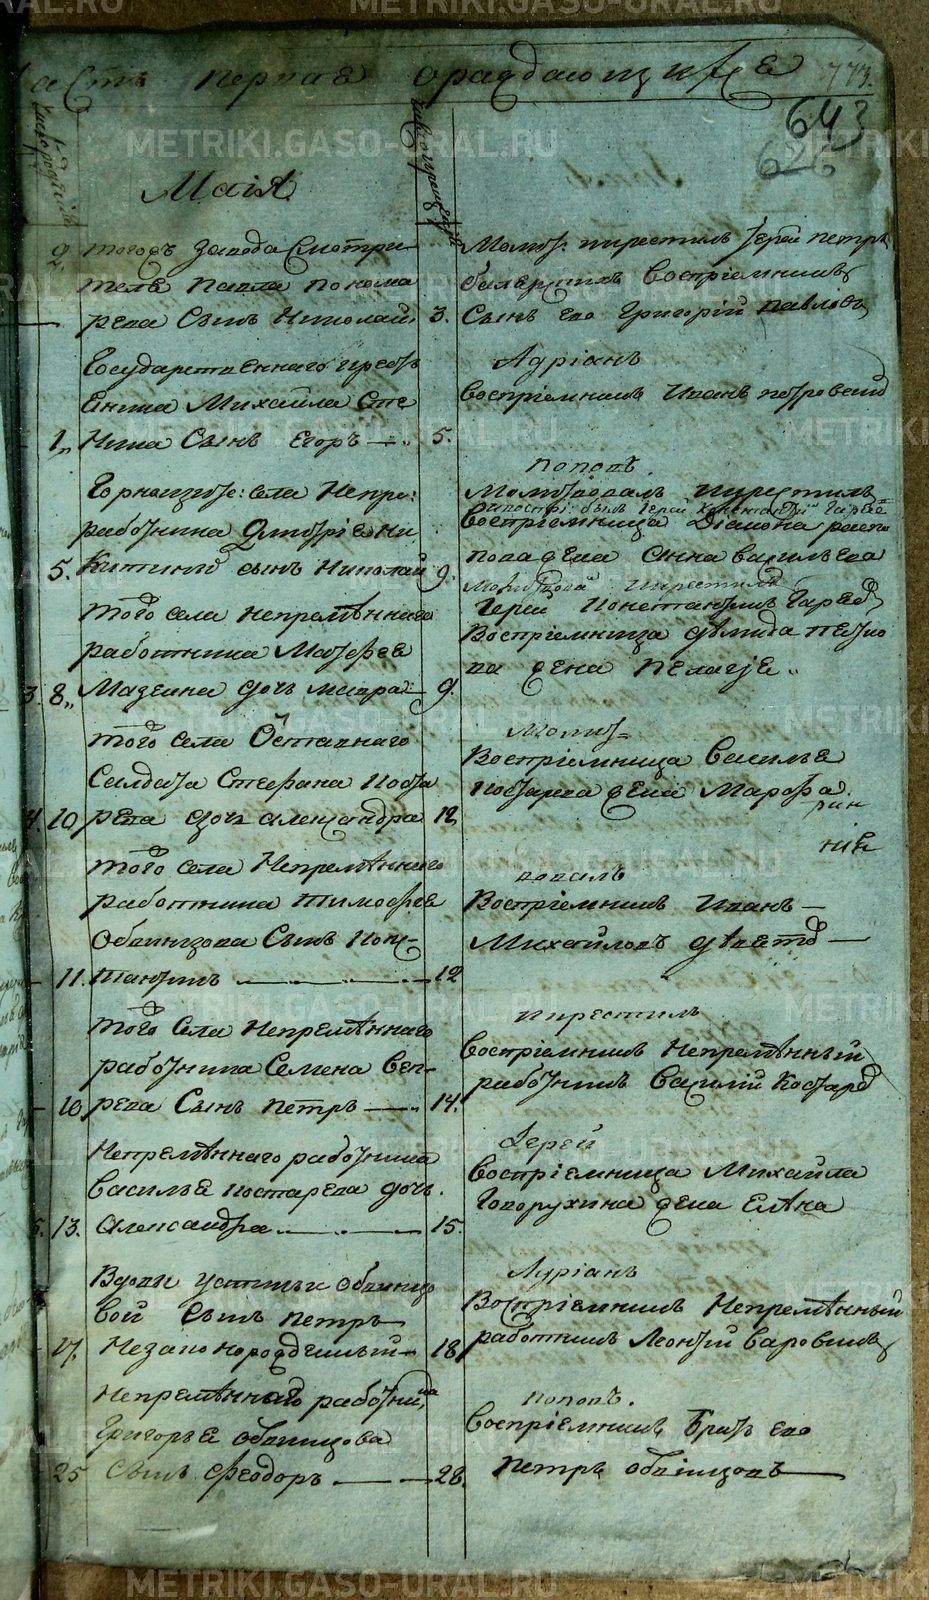 METRIKI.GASO-URAL.RU
часть первая о раждающихся 773.
643
626
число рождения
число крещения
Маія
9 тогожъ завода Смотри
теля Павла Понома
рева Сынъ Николай 3.
Молит: и крестилъ Іерей Петръ
воспріемникъ
Сынъ его Григорій Павловъ
Государственнаго крестъ
янина Михайла Сте
1 нина Сынъ Егоръ 5.
Адріанъ
воспріемникъ Иванъ Петровъ
Горнаго села Непре:
работника Дмитріе Ни
5. китина сынъ Николай 9.
Поповъ.
Молитвовалъ и крестилъ
воспріемница Діакона
попа жена Анна Васильева
того села непремѣннаго
работника Матфея
3 8 дочь Мавра 9.
Молитвов и крестилъ
Іерей Константинъ
Воспріемница
ва жена Пелагія
того села Отставнаго
Салдата Стефана Коста
4. 10 рева дочь Александра 12
Молит=
Воспріемница Василья
Костарева жена Марфа.
рин
ник
того села Непремѣннаго
работника Тимофея
Обвинцова Сынъ Конс-
11. тантинъ 12
вовалъ
Воспріемникъ Иванъ
Михайловъ
того Села Непремѣннаго
работника Семена Веп-
10 рева Сынъ Петръ 14.
и крестилъ
воспріемникъ Непремѣнный
работникъ Василій Костарев
Непремѣннаго работника
Василья Костарева дочь.
5. 13. Александра 15.
Іерей
Воспріемница Михайла
Говорухина жена Елѣна
Вдовы Устиньи Обвинцо
вой Сынъ Петръ
17. Незаконорожденный 18
Адріанъ
Воспріемникъ Непремѣнный
работникъ Леонтій
Непремѣннаго работника
Григорья Обвинцова
25 Сынъ Феодоръ 28.
Поповъ.
Воспріемникъ Братъ его
Петръ Обвинцовъ
METRIKI.GASO-URAL.RU